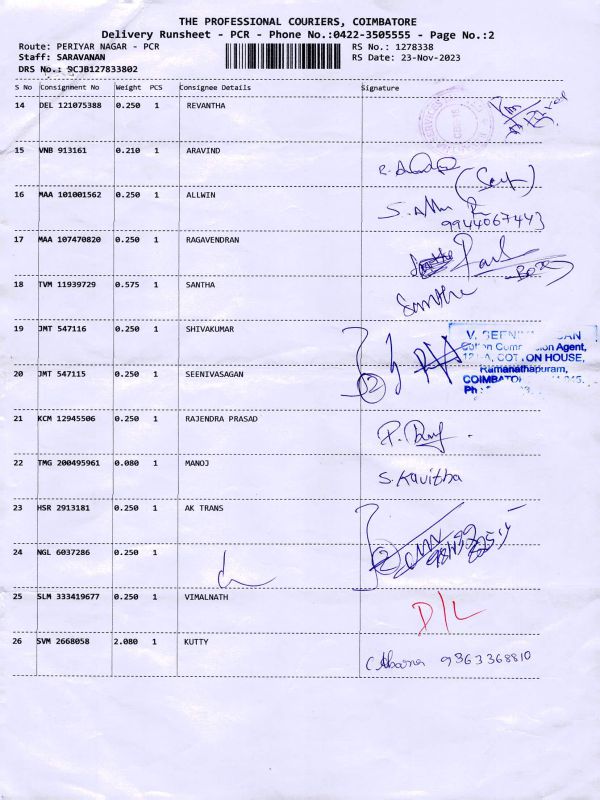 THE PROFESSIONAL COURIERS, COIMBATORE
Delivery Runsheet - PCR - Phone No.:0422-3505555 - Page No.:2
Route: PERIYAR NAGAR - PCR RS No.: 1278338
Staff: SARAVANAN RS Date: 23-Nov-2023
DRS No.: SCJB127833802
S No Consignment No Weight PCS Consignee Details Signature
14 DEL 121075388 0.250 1 REVANTHA
15 VNB 913161 0.210 1 ARAVIND
16 MAA 101001562 0.250 1 ALLWIN
9944067443
17 MAA 107470820 0.250 1 RAGAVENDRAN
18 TVM 11939729 0.575 1 SANTHA Santha
19 JMT 547116 0.250 1 SHIVAKUMAR
Agent,
121-A, COTTON HOUSE,
Ramanathapuram,
20 JMT 547115 0.250 1 SEENIVASAGAN 2
21 KCM 12945506 0.250 1 RAJENDRA PRASAD
22 TMG 200495961 0.080 1 MANOJ S. Kavitha
23 HSR 2913181 0.250 1 AK TRANS
24 NGL 6037286 0.250 1 2
25 SLM 333419677 0.250 1 VIMALNATH D/L
26 SVM 2668058 2.080 1 KUTTY 9363368810